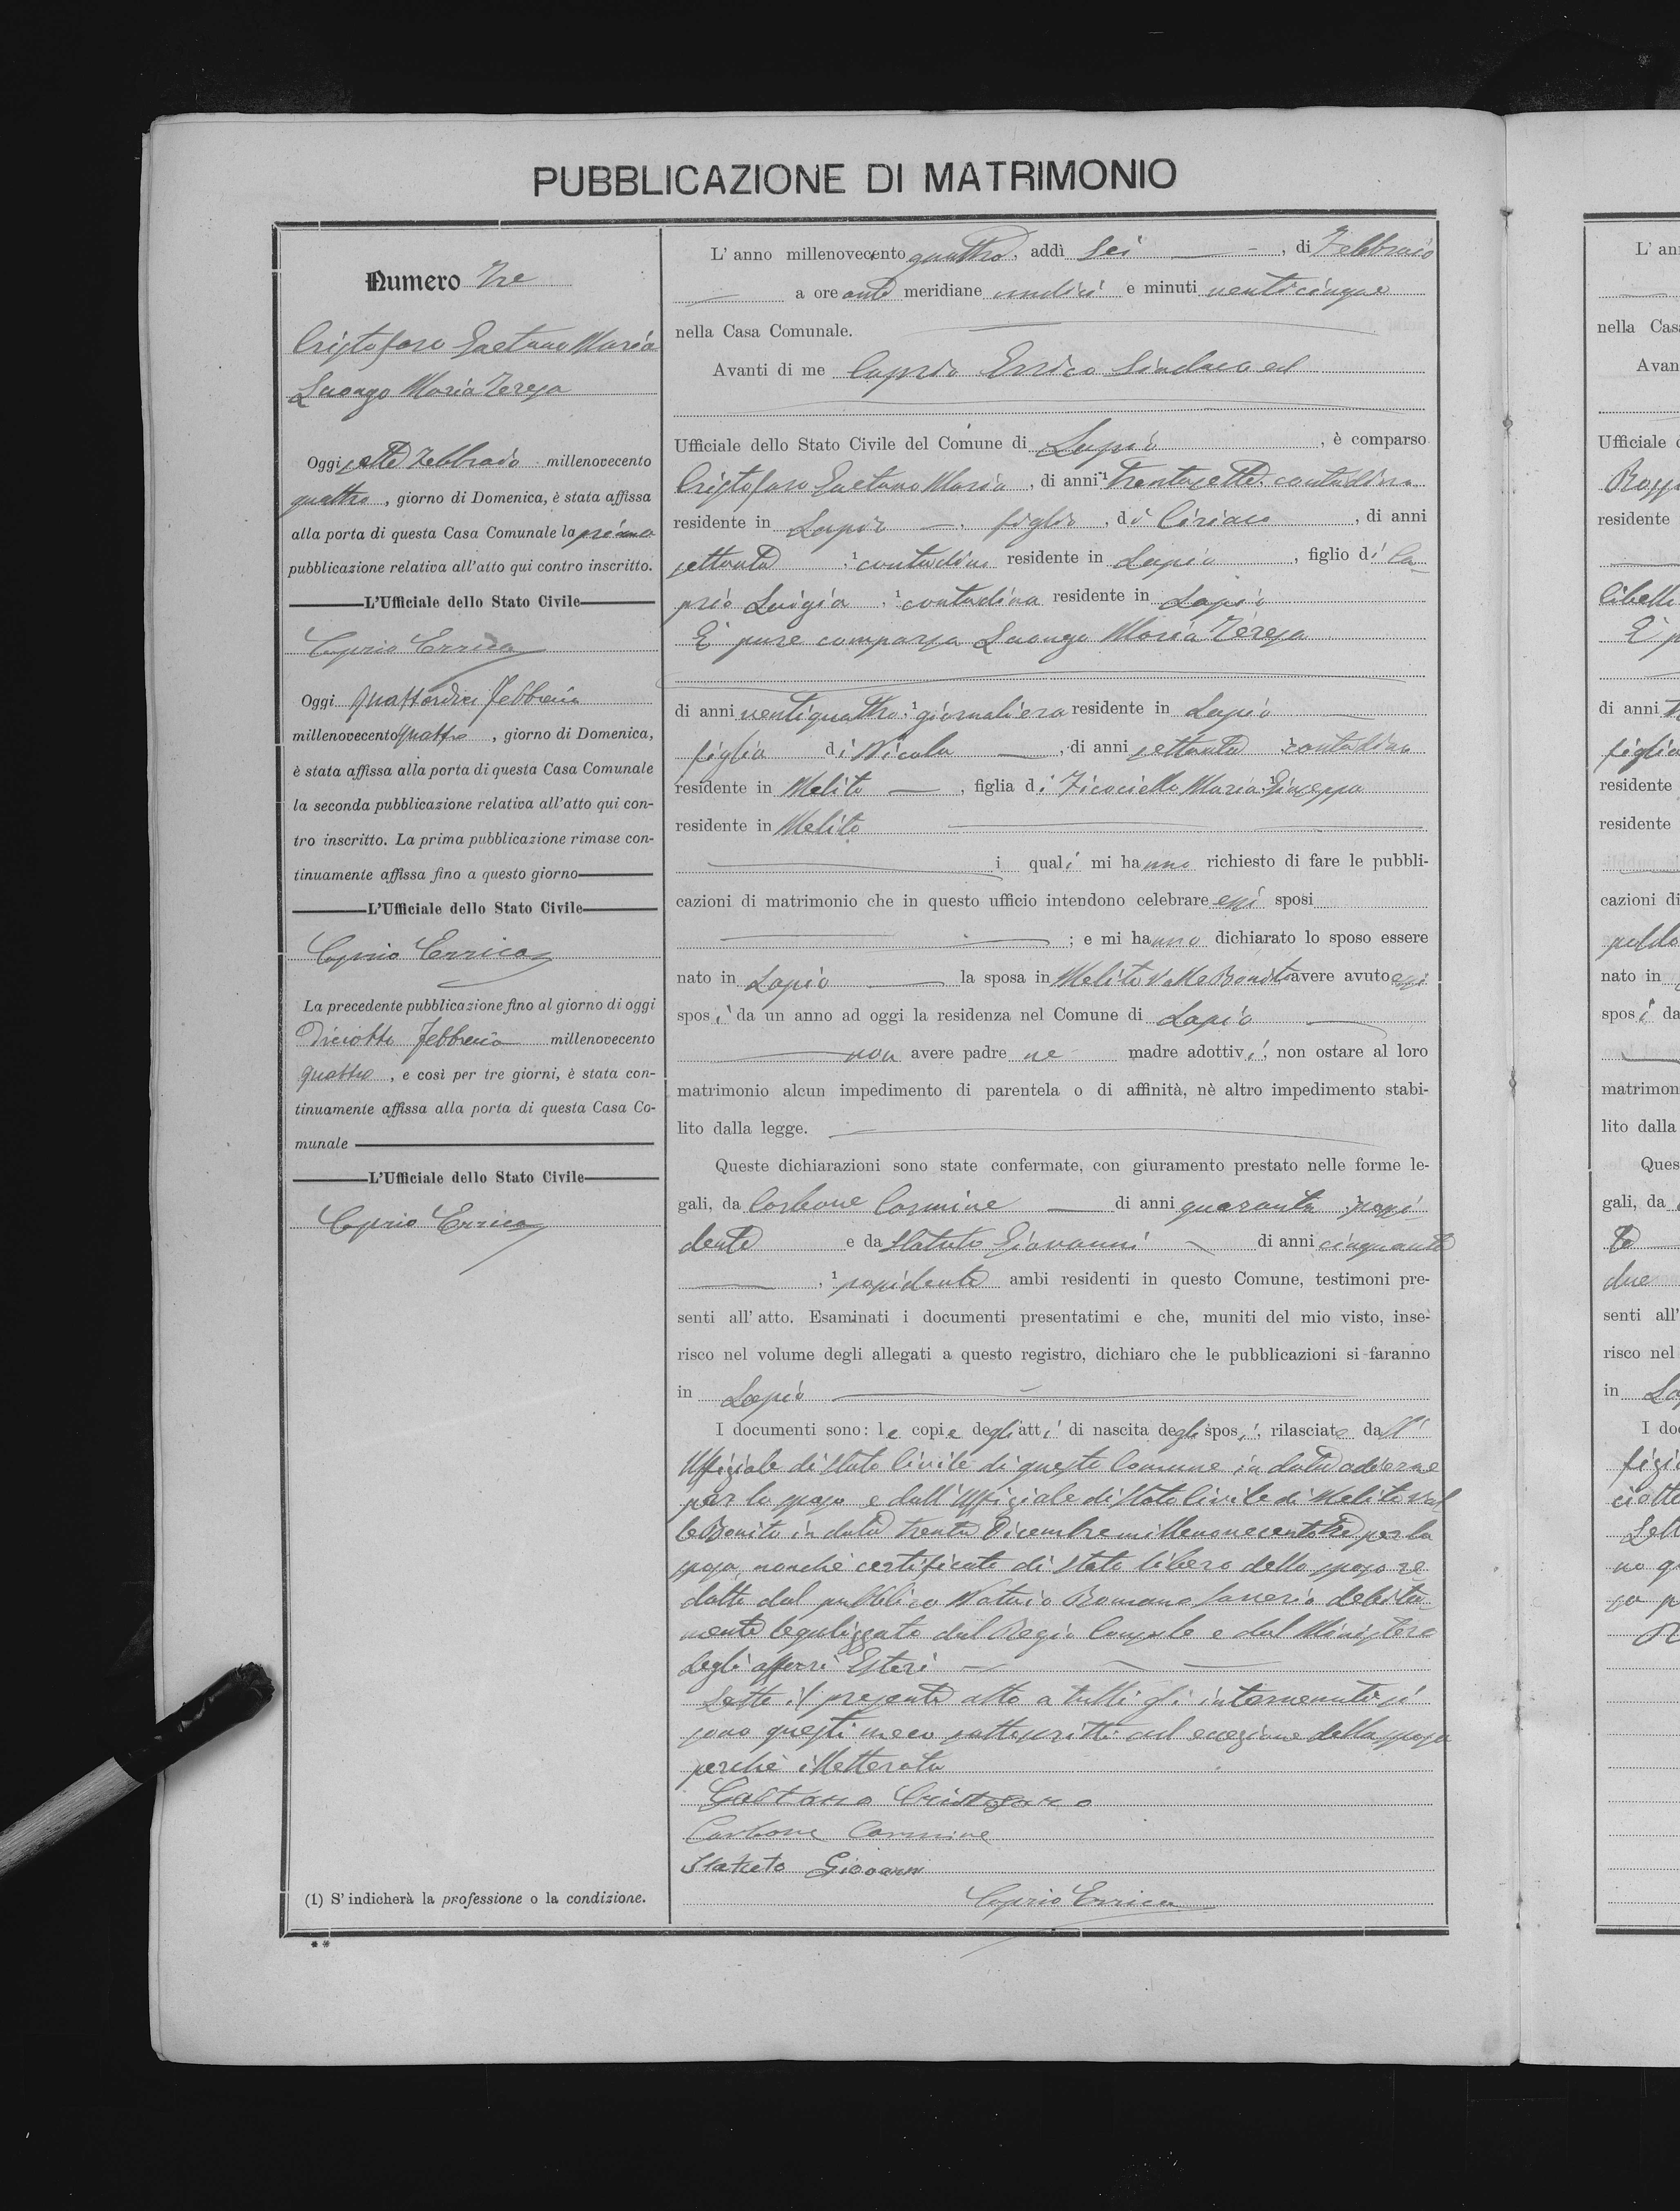 PUBBLICAZIONE DI MATRIMONIO
Numero Tre
Cristofaro Gaetano Maria
Luongo Maria Teresa
Oggi sette Febbraio millenovecento
quattro, giorno di Domenica, è stata affissa
alla porta di questa Casa Comunale la prima
pubblicazione relativa all'atto qui contro inscritto.
L'Ufficiale dello Stato Civile
Caprio Errico
Oggi quattordici Febbraio
millenovecento quattro, giorno di Domenica,
è stata affissa alla porta di questa Casa Comunale
la seconda pubblicazione relativa all'atto qui con-
tro inscritto. La prima pubblicazione rimase con-
tinuamente affissa fino a questo giorno
L'Ufficiale dello Stato Civile
Caprio Errico
La precedente pubblicazione fino al giorno di oggi
Diciotto Febbraio millenovecento
quattro, e così per tre giorni, è stata con-
tinuamente affissa alla porta di questa Casa Co-
munale
L'Ufficiale dello Stato Civile
Caprio Errico
(1) S'indicherà la professione o la condizione.
**
L'anno millenovecento quattro, addì Sei, di Febbraio
a ore ante meridiane undici e minuti venticinque
nella Casa Comunale.
Avanti di me Caprio Errico Sindaco ed
Ufficiale dello Stato Civile del Comune di Lapio, è comparso
Cristofaro Gaetano Maria, di anni 1 trentasette contadino
residente in Lapio, figlio, di Ciriaco, di anni
settanta, 1 contadino residente in Lapio, figlio di Ca-
prio Luigia, 1 contadina residente in Lapio
È pure comparsa Luongo Maria Teresa
di anni ventiquattro, 1 giornaliera residente in Lapio
figlia di Nicola, di anni settanta 1 contadino
residente in Melito, figlia di Ficociello Maria Giuseppa
residente in Melito
i quali mi hanno richiesto di fare le pubbli-
cazioni di matrimonio che in questo ufficio intendono celebrare essi sposi
; e mi hanno dichiarato lo sposo essere
nato in Lapio la sposa in Melito Valle Bonito avere avuto essi
sposi da un anno ad oggi la residenza nel Comune di Lapio
non avere padre ne madre adottivi, non ostare al loro
matrimonio alcun impedimento di parentela o di affinità, nè altro impedimento stabi-
lito dalla legge.
Queste dichiarazioni sono state confermate, con giuramento prestato nelle forme le-
gali, da Carbone Carmine di anni quaranta, 1 possi-
dente e da Statuto Giovanni di anni cinquanta
, 1 possidente ambi residenti in questo Comune, testimoni pre-
senti all'atto. Esaminati i documenti presentatimi e che, muniti del mio visto, inse-
risco nel volume degli allegati a questo registro, dichiaro che le pubblicazioni si faranno
in Lapio
I documenti sono: le copie degli atti di nascita degli sposi, rilasciate dall'
Uffiziale di Stato Civile di questo Comune in data odierna
per lo sposo e dall'Uffiziale di Stato Civile di Melito Val
le Bonito in data trenta Dicembre millenovecentotre per la
sposa, nonchè certificato di stato libero dello sposo re
datto dal pubblico Notaio Romano Saverio debita-
mente legalizzato dal Regio Console e dal Ministero
degli affari Esteri
Letto il presente atto a tutti gli intervenuti si
sono questi meco sottoscritti ad eccezione della sposa
perchè illetterata
Gaetano Cristofaro
Carbone Carmine
Statuto Giovanni
Caprio Errico
L'an
nella Cas
Avan
Ufficiale
residente
È p
di anni
figlia
residente
residente
cazioni di
nato in
sposi da
matrimon
lito dalla
Ques
gali, da
due
senti all'
risco nel
in La
I do